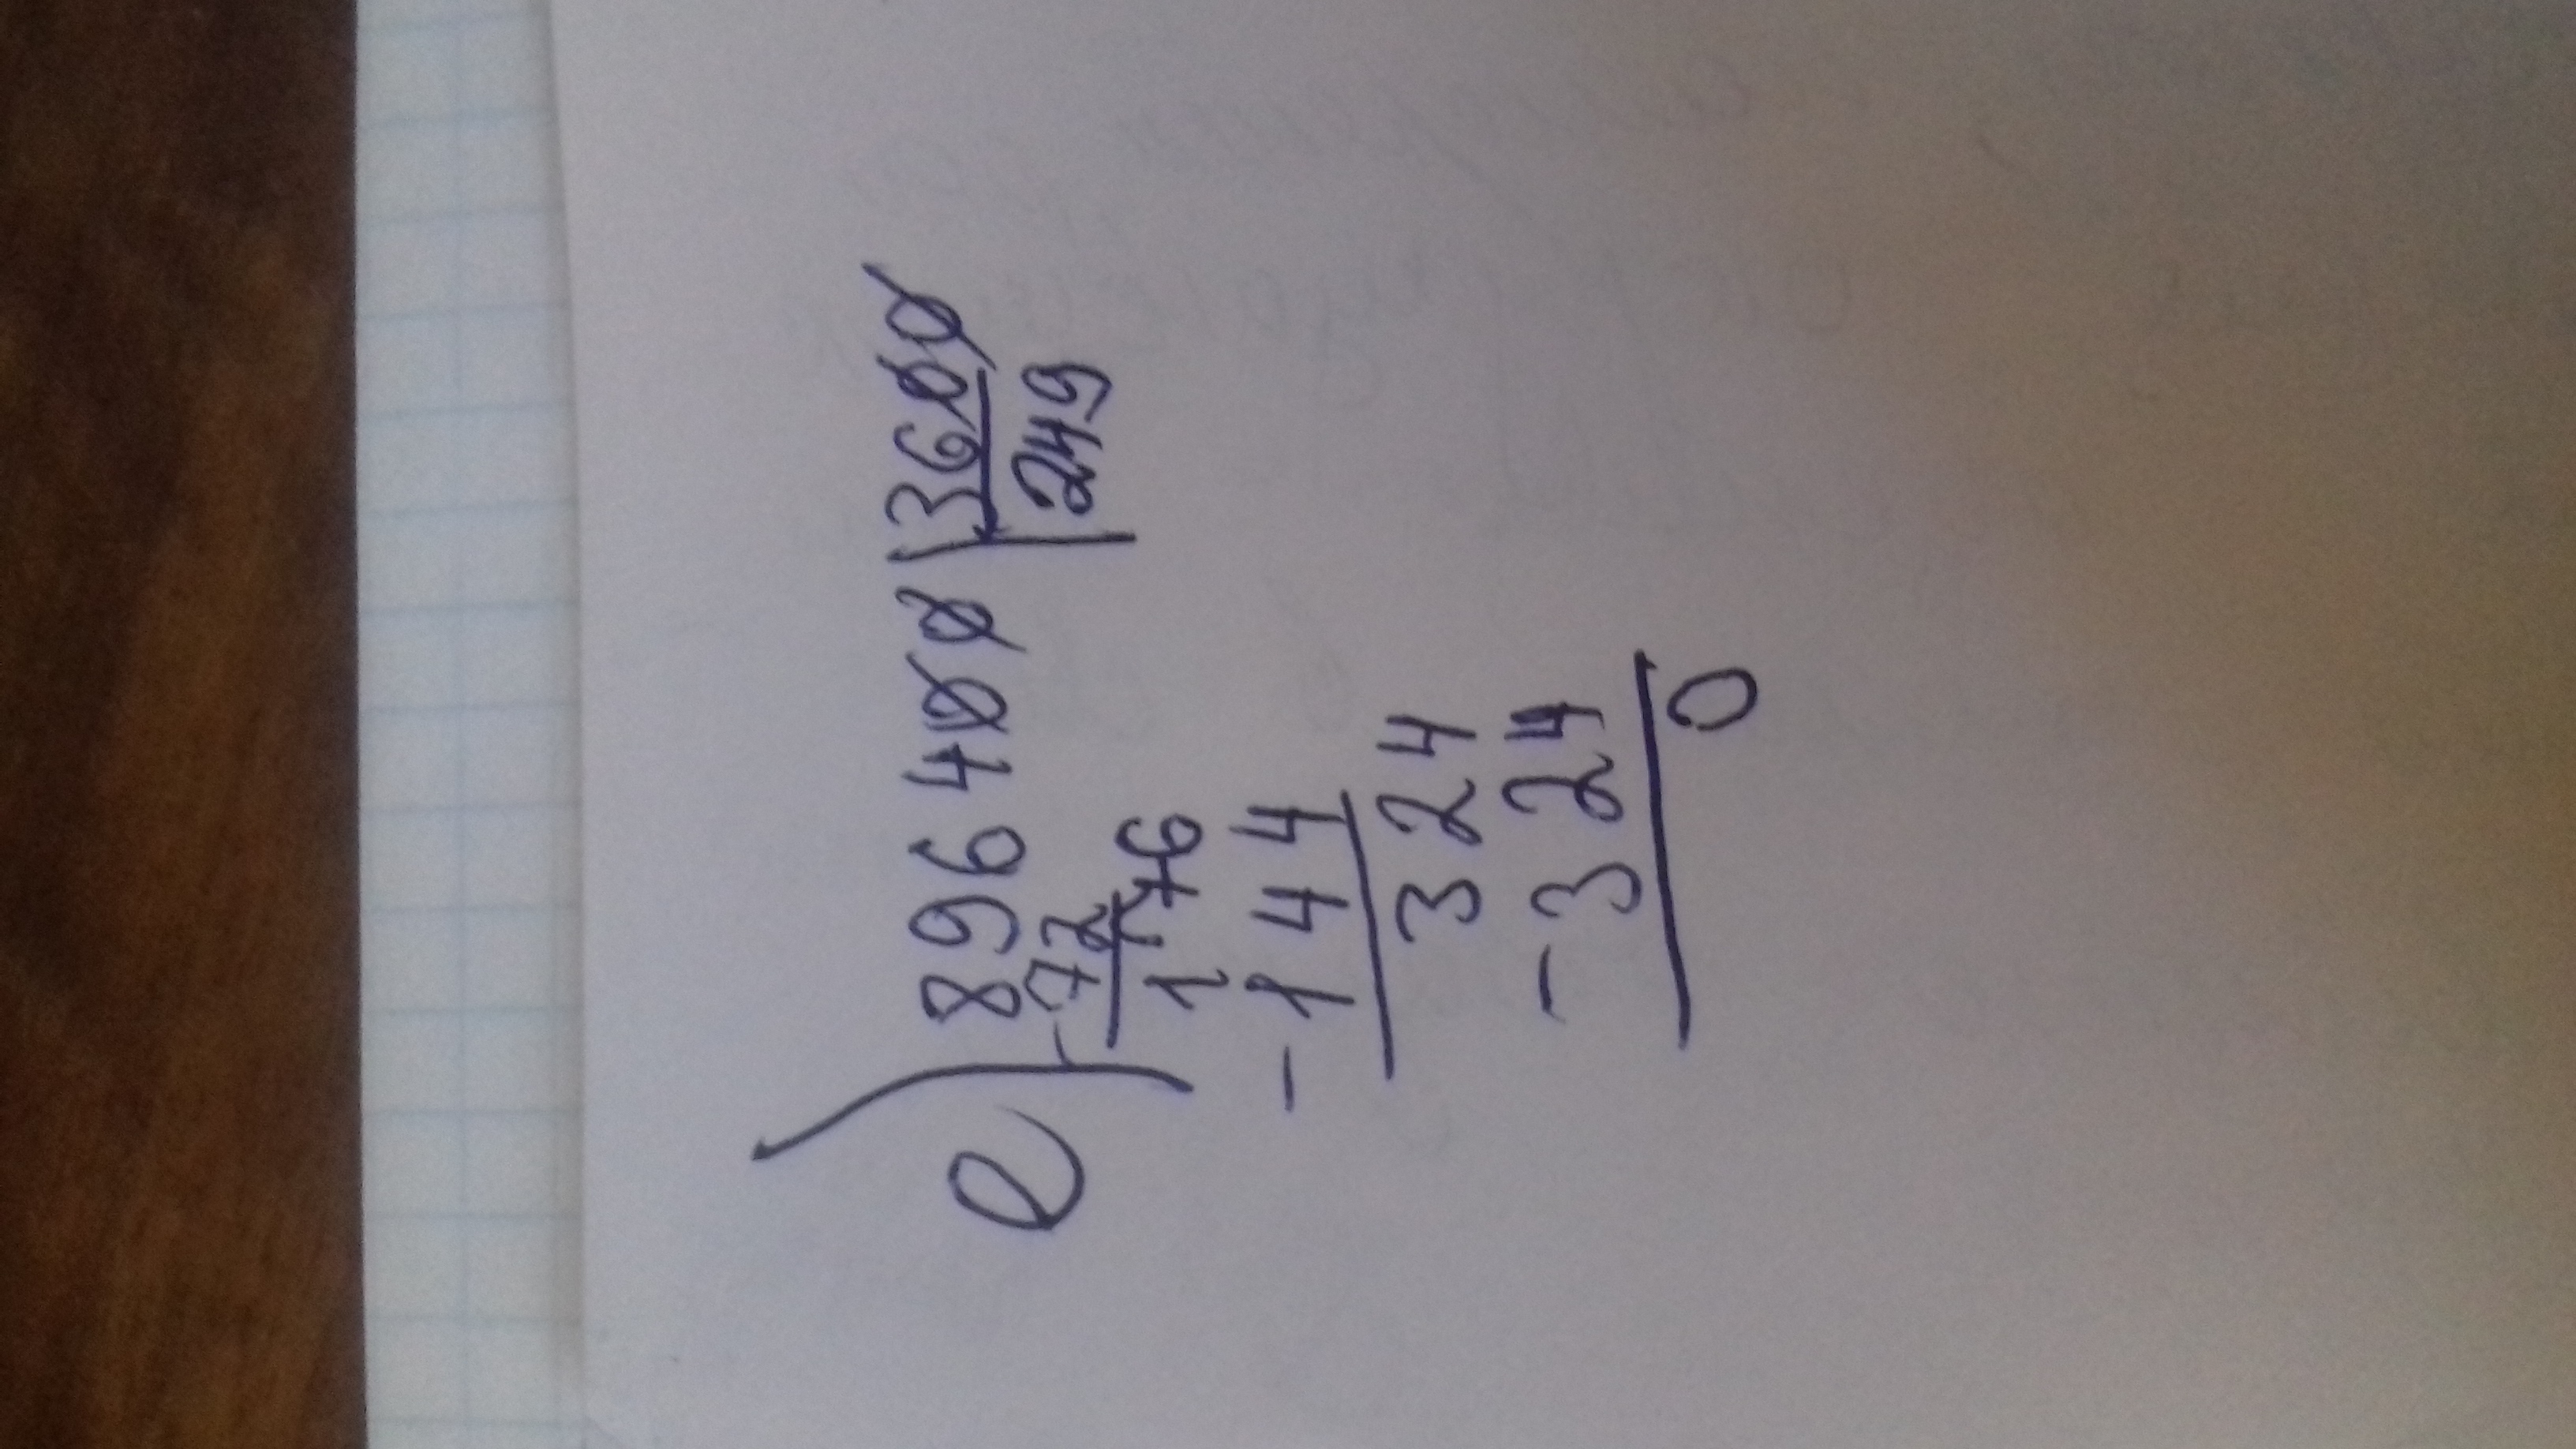 е) 896400 | 3600
- 72 | 249
176
- 144
324
- 324
0